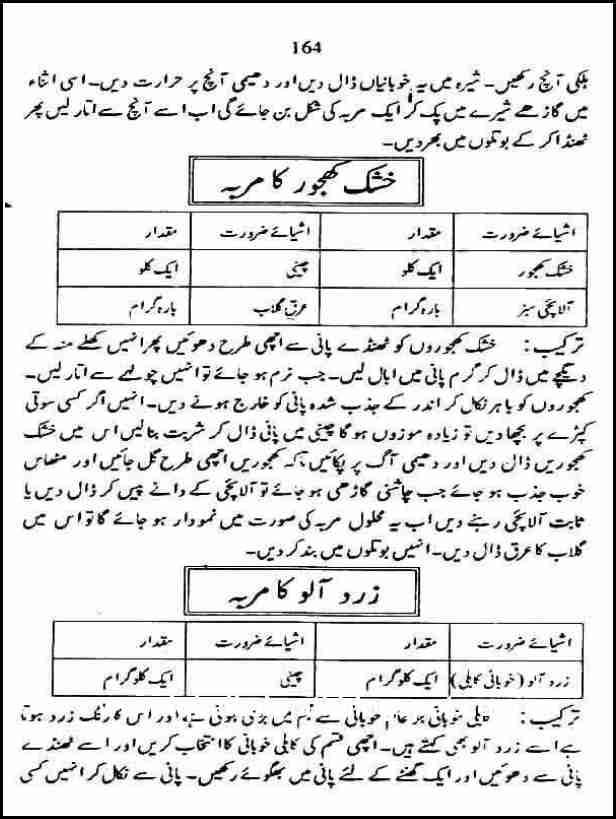 164
ہلکی آنچ رکھیں۔ شیرہ میں یہ خوبانیاں ڈال دیں اور دھیمی آنچ پر حرارت دیں۔ اسی اثناء
میں گاڑھے شیرے میں پک کر ایک مربہ کی شکل بن جائے گی اب اسے آنچ سے اتار لیں پھر
ٹھنڈا کر کے بوتلوں میں بھر دیں۔
خشک کھجور کا مربہ
اشیائے ضرورت مقدار اشیائے ضرورت مقدار
خشک کھجور ایک کلو چینی ایک کلو
آلاپچی سبز بارہ گرام عرق گلاب بارہ گرام
ترکیب: خشک کھجوروں کو ٹھنڈے پانی سے اچھی طرح دھوئیں پھر انہیں کھلے منہ کے
دیگچے میں ڈال کر گرم پانی میں ابال لیں۔ جب نرم ہو جائے تو انہیں چولہے سے اتار لیں۔
کھجوروں کو باہر نکال کر اندر کے جذب شدہ پانی کو خارج ہونے دیں۔ انہیں اگر کسی سوتی
کپڑے پر بچھا دیں تو زیادہ موزوں ہو گا چینی میں پانی ڈال کر شربت بنا لیں اس میں خشک
کھجوریں ڈال دیں اور دھیمی آگ پر پکائیں تاکہ کھجوریں اچھی طرح گل جائیں اور مٹھاس
خوب جذب ہو جائے جب چاشنی گاڑھی ہو جائے تو آلاپچی کے دانے پیس کر ڈال دیں یا
ثابت آلاپچی رہنے دیں اب یہ محلول مربہ کی صورت میں نمودار ہو جائے گا تو اس میں
گلاب کا عرق ڈال دیں۔ انہیں بوتلوں میں بند کر دیں۔
زرد آلو کا مربہ
اشیائے ضرورت مقدار اشیائے ضرورت مقدار
زرد آلو (خوبانی کابلی) ایک کلو گرام چینی ایک کلو گرام
ترکیب: کابلی خوبانی ہر عام خوبانی سے میں بڑی ہوتی ہے اور اس کا رنگ زرد ہوتا
ہے اسے زرد آلو بھی کہتے ہیں۔ اچھی قسم کی کابلی خوبانی کا انتخاب کریں اور اسے ٹھنڈے
پانی سے دھوئیں اور ایک گھنٹے کے لئے پانی میں بھگوئے رکھیں۔ پانی سے نکال کر انہیں کسی